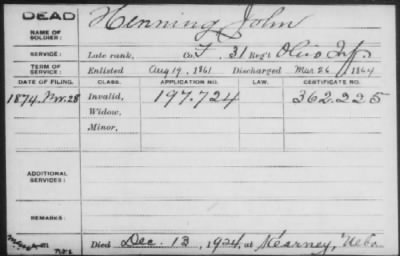 DEAD
NAME OF SOLDIER: Henning John
SERVICE: Late rank, Co. F, 31 Reg't Ohio Inf
TERM OF SERVICE: Enlisted Aug 19, 1861 Discharged Mar 26, 1864
DATE OF FILING. CLASS. APPLICATION NO. LAW. CERTIFICATE NO.
1874. Nov. 28 Invalid, 197.724 362.225
Widow,
Minor,
ADDITIONAL SERVICES:
REMARKS:
Died Dec. 13, 1924, at Kearney, Nebr